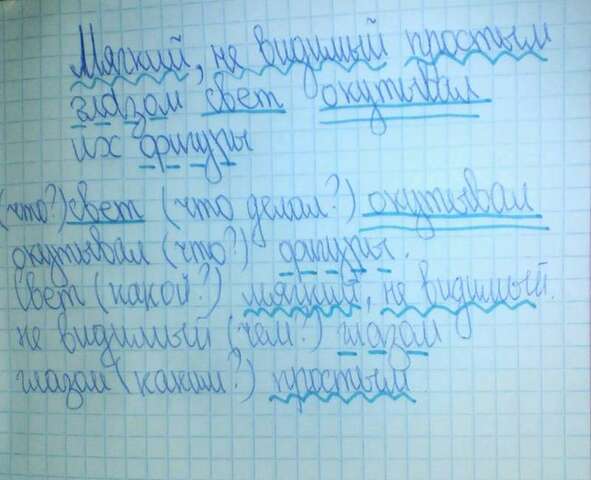 Мягкий, не видимый простым
глазом свет окутывал
их фигуры
(что?) свет (что делал?) окутывал
окутывал (что?) фигуры.
Свет (какой?) мягкий, не видимый.
не видимый (чем?) глазом
глазом (каким?) простым